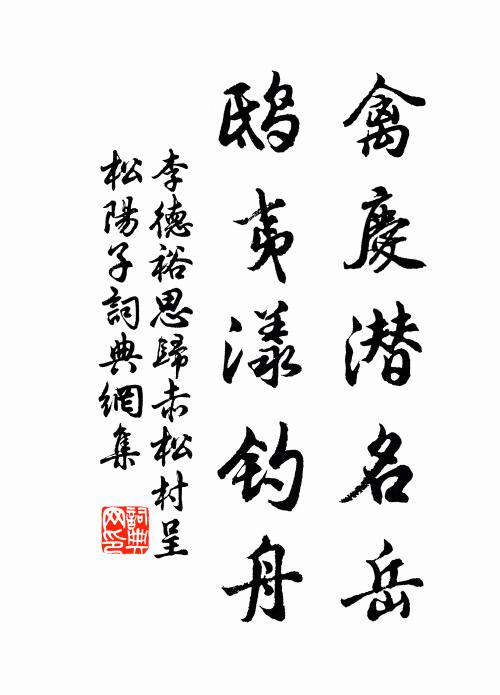 禽慶潛名岳
鸱夷漾钓舟
李德裕思歸赤松村呈
松陽子詞典網集
詞典網印